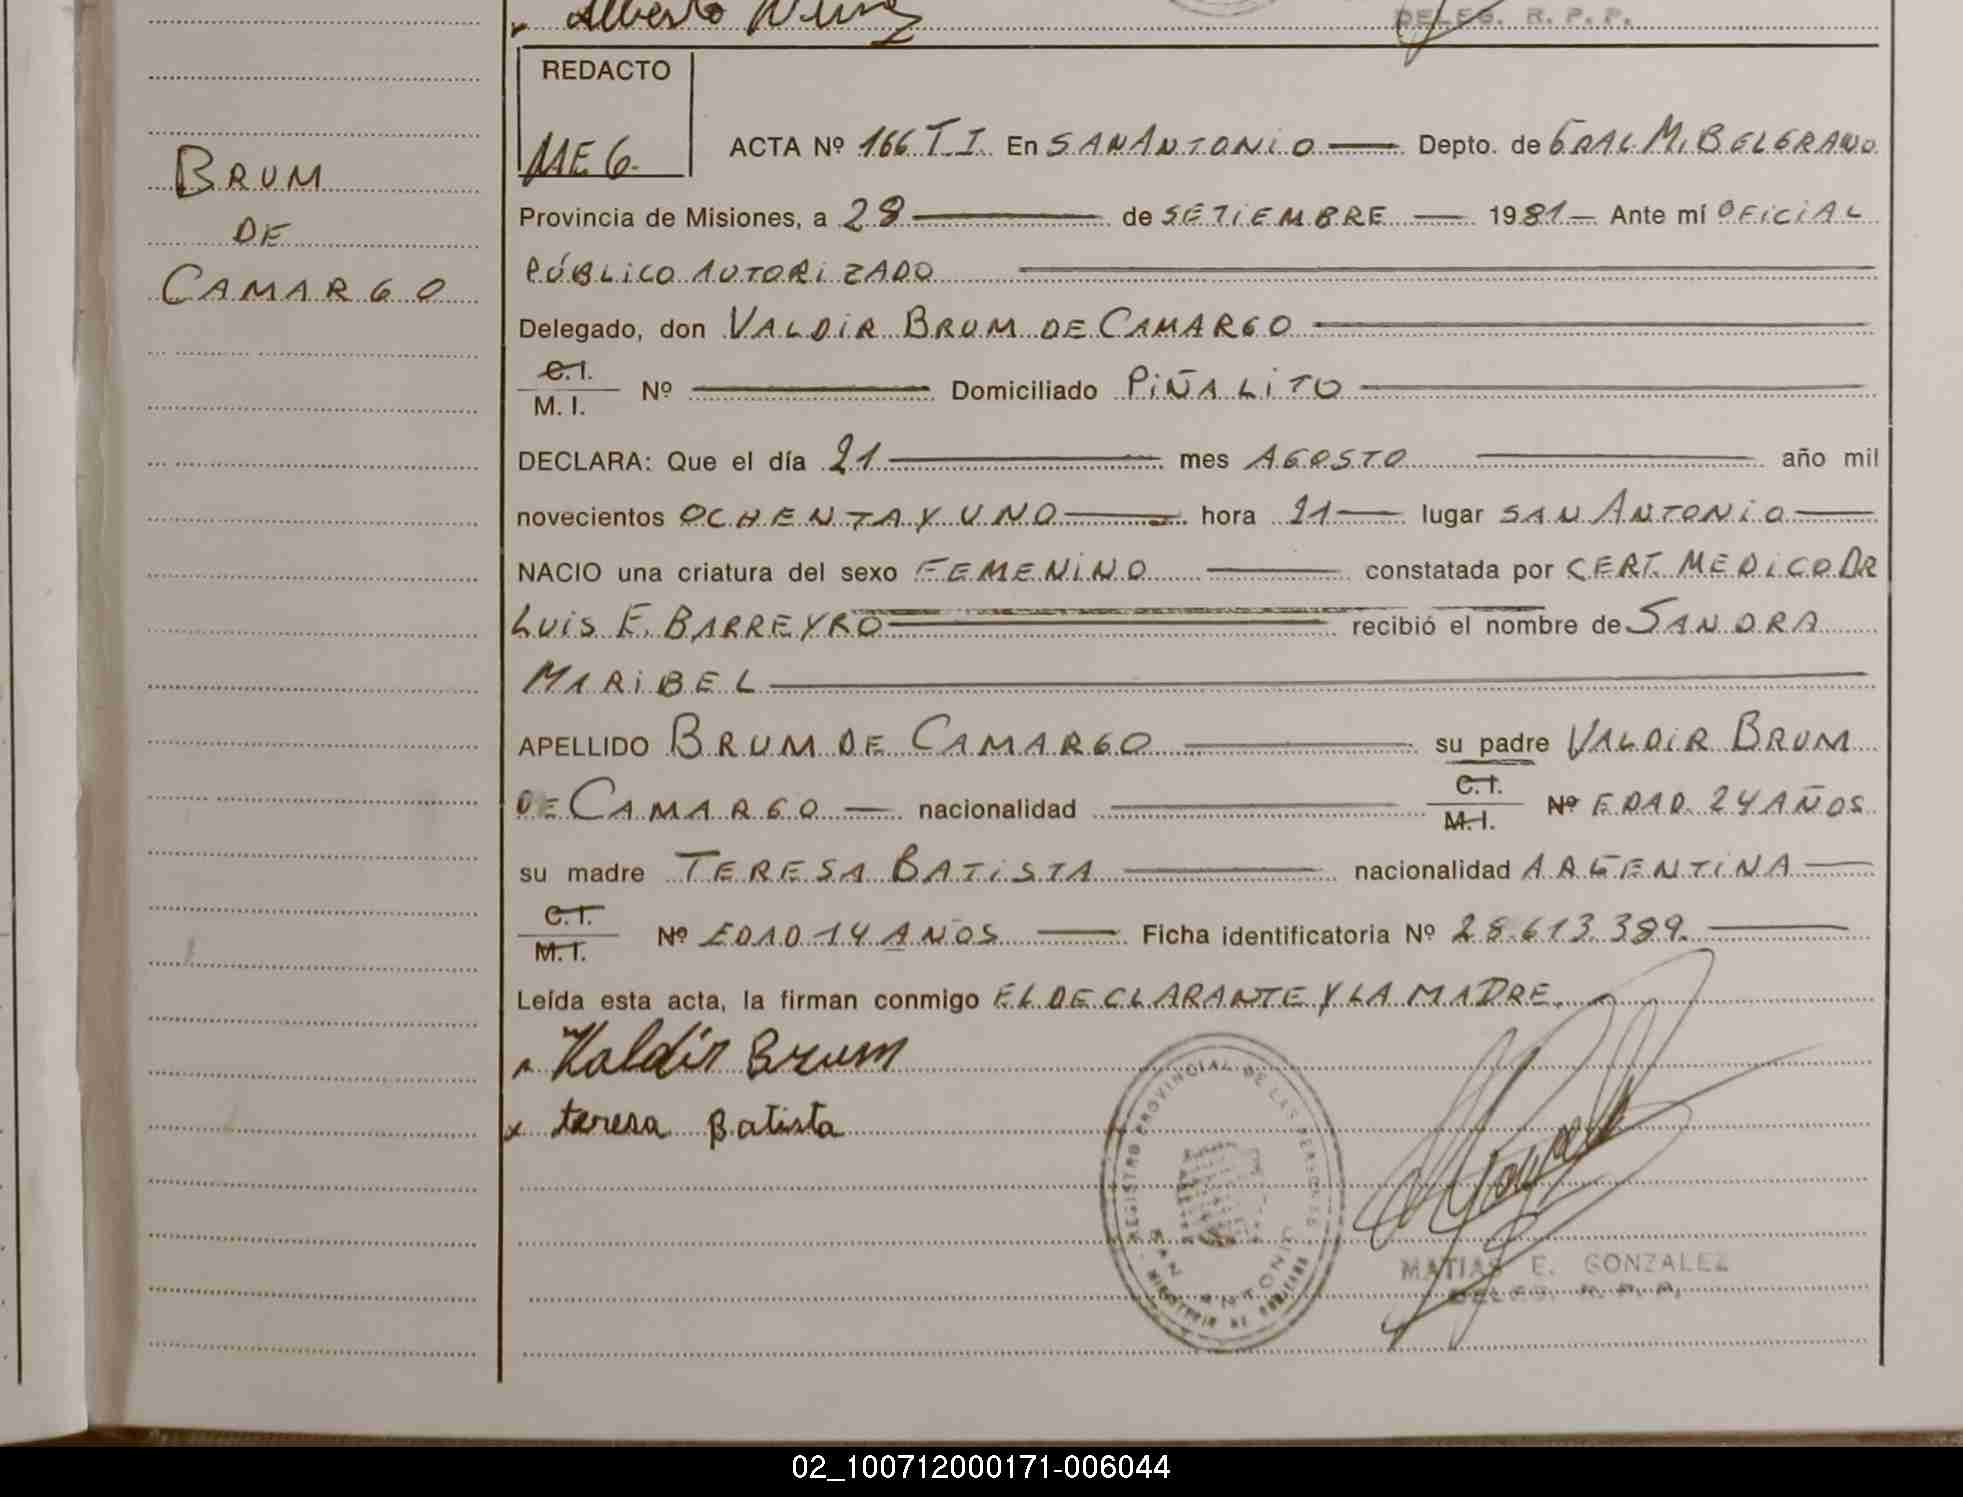 Alberto
DELEG. R. P. P.
BRUM
DE
CAMARGO
REDACTO
ME G.
ACTA Nº 166 T I. En SAN ANTONIO Depto. de GRAL M. BELGRANO
Provincia de Misiones, a 28 de SETIEMBRE 1981 Ante mí OFICIAL
PÚBLICO AUTORIZADO
Delegado, don VALDIR BRUM DE CAMARGO
C. I.
M. I. Nº Domiciliado PIÑALITO
DECLARA: Que el día 21 mes AGOSTO año mil
novecientos OCHENTA Y UNO hora 21 lugar SAN ANTONIO
NACIO una criatura del sexo FEMENINO constatada por CERT. MEDICO DR
LUIS E. BARREYRO recibió el nombre de SANDRA
MARIBEL
APELLIDO BRUM DE CAMARGO su padre VALDIR BRUM
DE CAMARGO nacionalidad C. I. M. I. Nº EDAD 24 AÑOS
su madre TERESA BATISTA nacionalidad ARGENTINA
C. I.
M. I. Nº EDAD 14 AÑOS Ficha identificatoria Nº 28.613.389.
Leída esta acta, la firman conmigo EL DECLARANTE Y LA MADRE.
x Valdir Brum
x teresa Batista
REGISTRO PROVINCIAL DE LAS PERSONAS
SAN ANTONIO
MINISTERIO DE GOBIERNO
MATIAS E. GONZALEZ
DELEG. R. P. P.
02_100712000171-006044